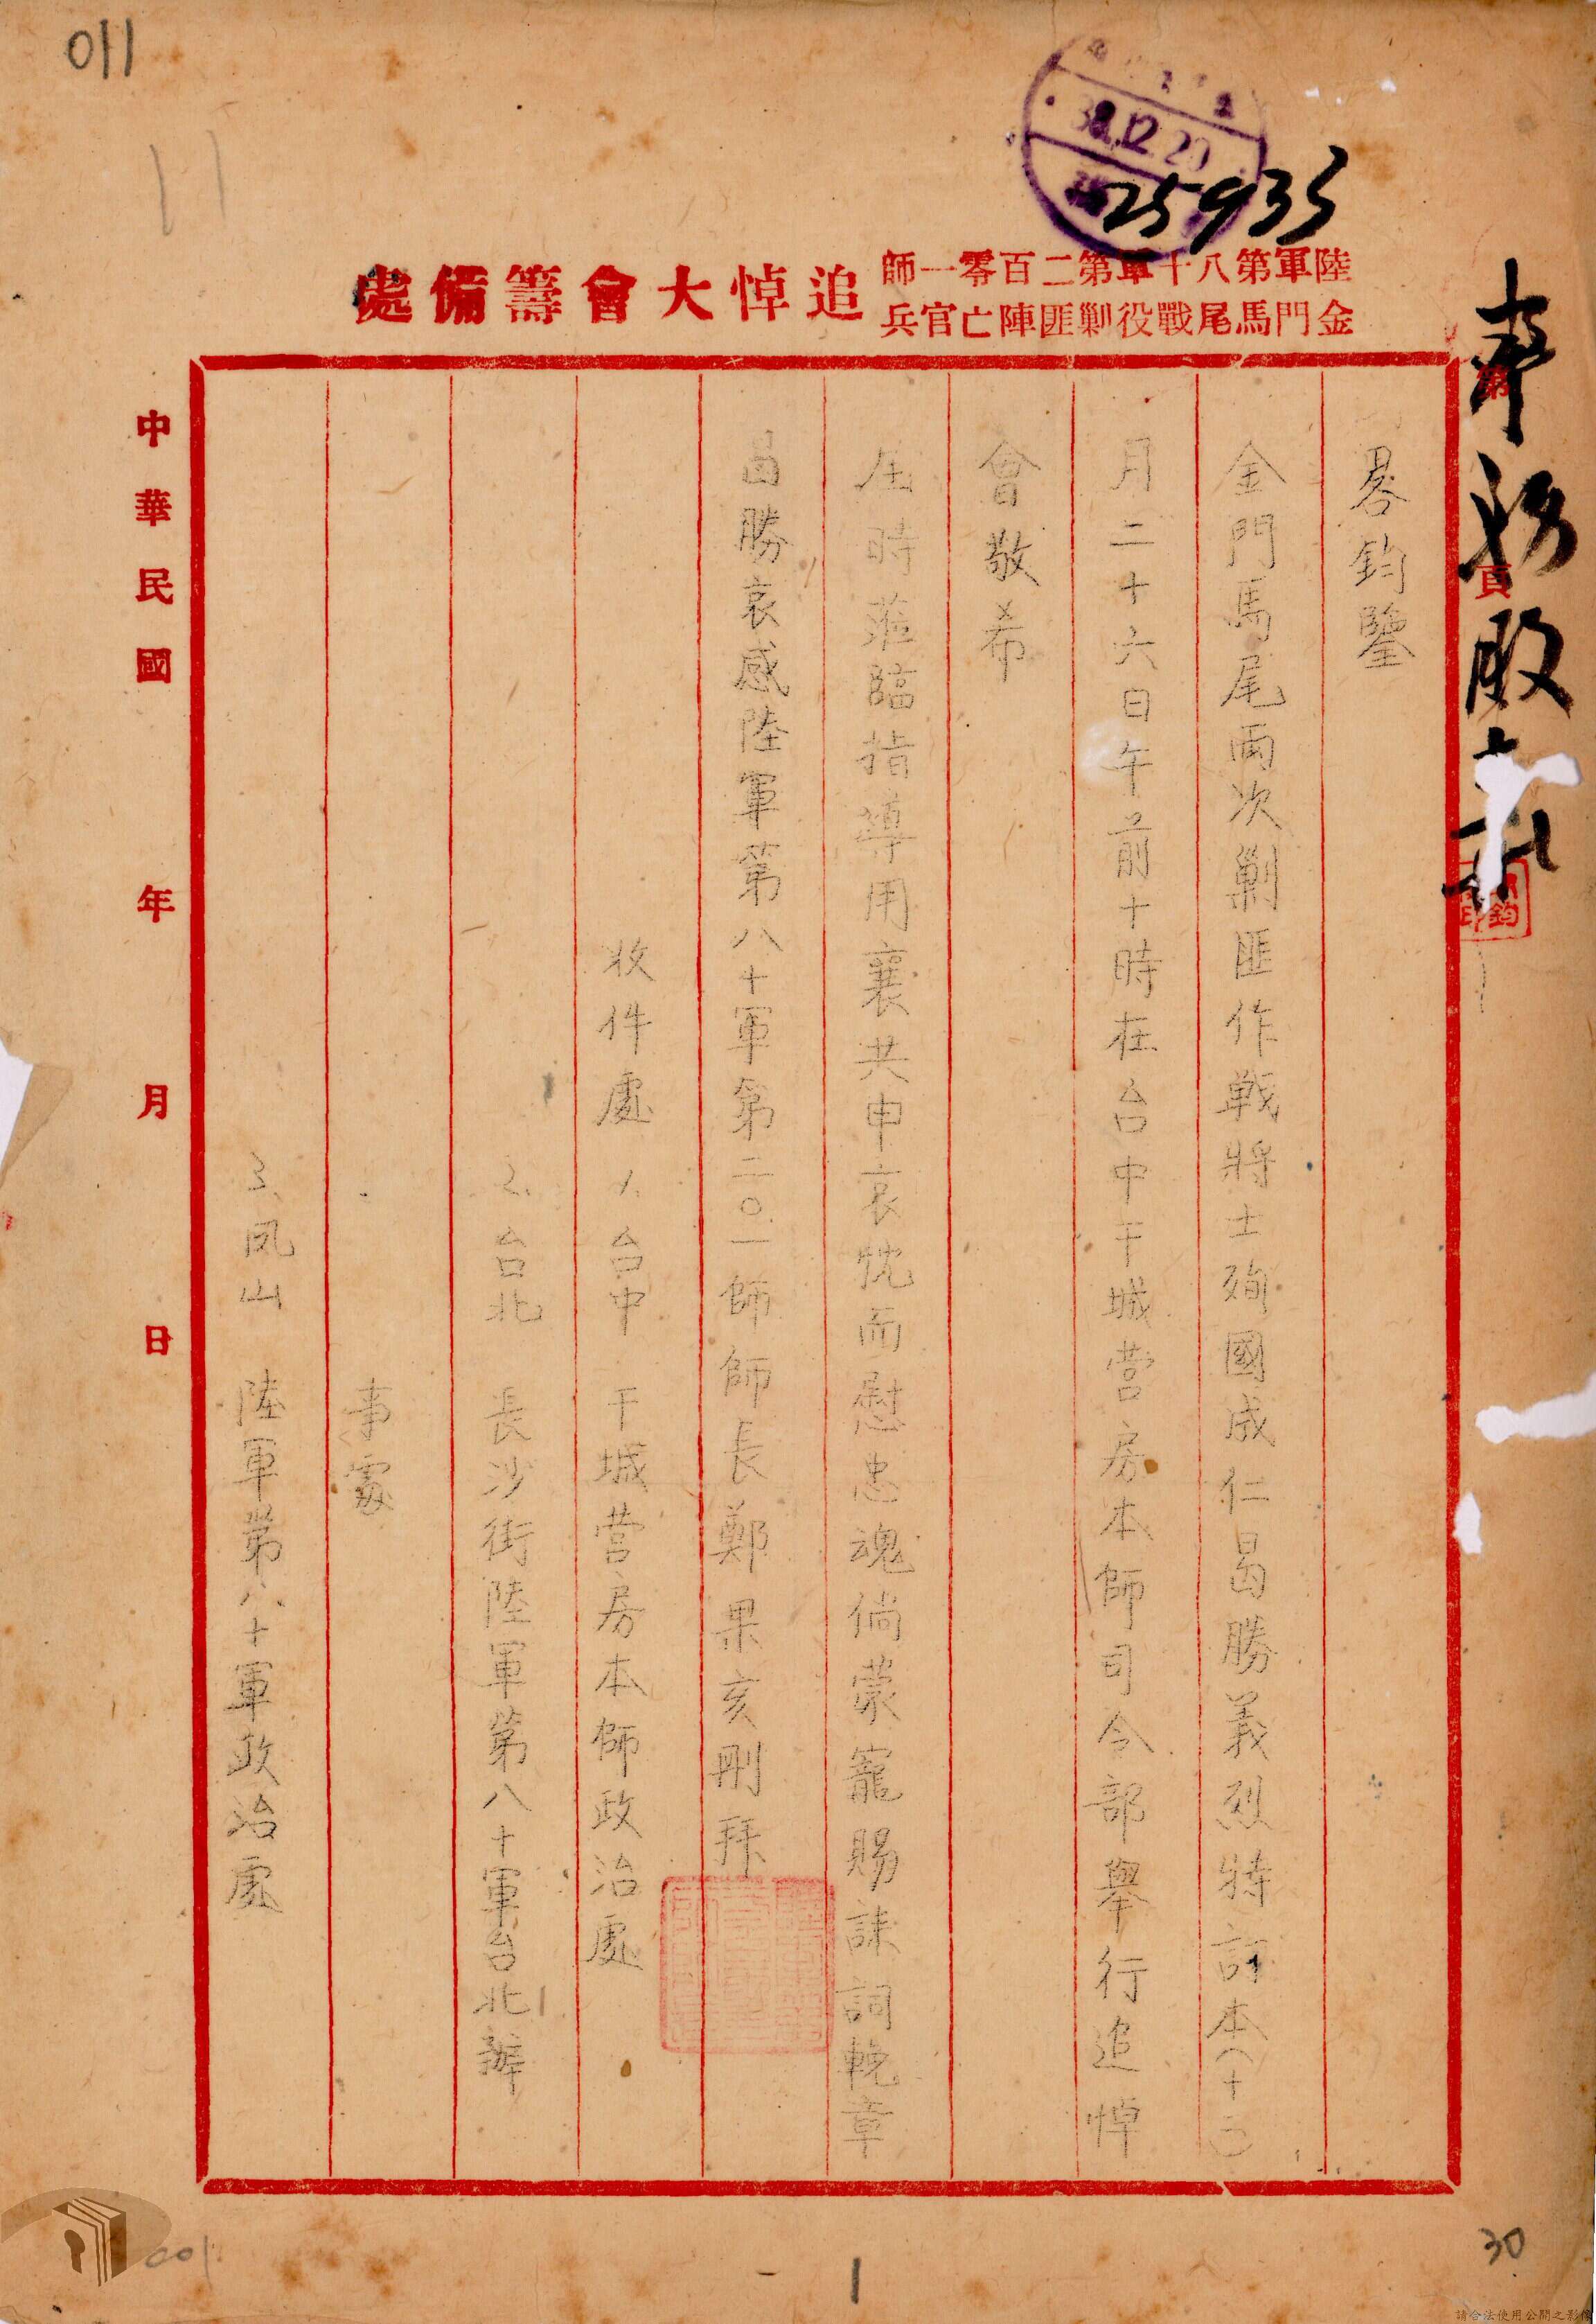 011
11
38.12.20
25935
陸軍第八十軍第二百零一師
金門馬尾戰役剿匪陣亡官兵
追悼大會籌備處
第
頁
畧鈞鑒
金門馬尾兩次剿匪作戰將士殉國成仁曷勝義烈特訂本(十二)
月二十六日午前十時在台中干城營房本師司令部舉行追悼
會敬希
屆時蒞臨指導用襄共申哀忱而慰忠魂倘蒙寵賜誄詞輓章
曷勝哀感陸軍第八十軍第二〇一師師長鄭果亥刪拜
收件處 1.台中 干城營房本師政治處
2.台北 長沙街陸軍第八十軍台北辦
事處
3.鳳山 陸軍第八十軍政治處
中華民國 年 月 日
001
1
30
請合法使用公開之影像